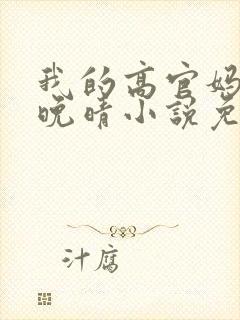 我的高官妈
晚晴小说免
汁腐